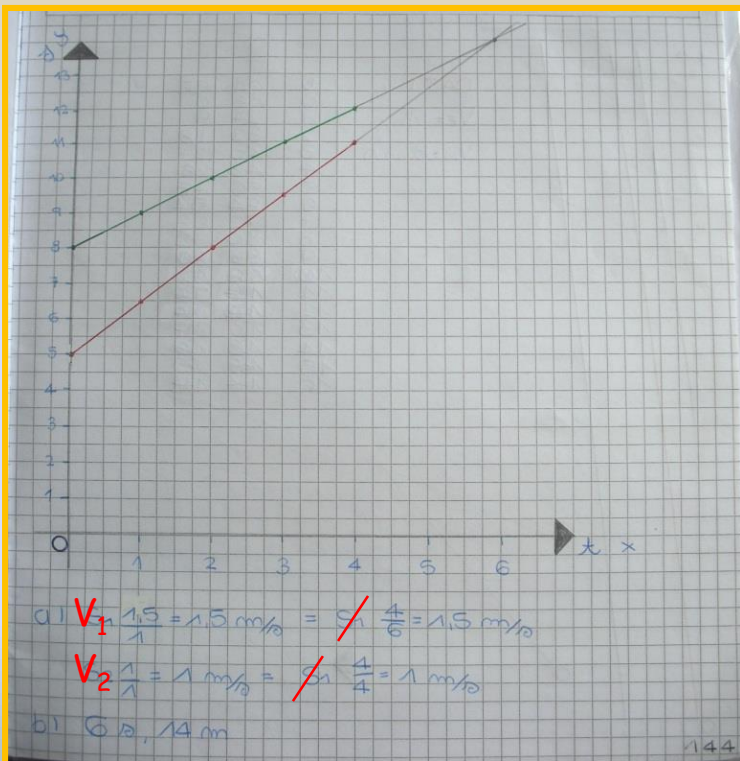 s y
13
12
11
10
9
8
7
6
5
4
3
2
1
0 1 2 3 4 5 6 t x
a) V1 1,5/1 = 1,5 m/s = S1 4/6 = 1,5 m/s
V2 1/1 = 1 m/s = S1 4/4 = 1 m/s
b) 6 s, 14 m
144